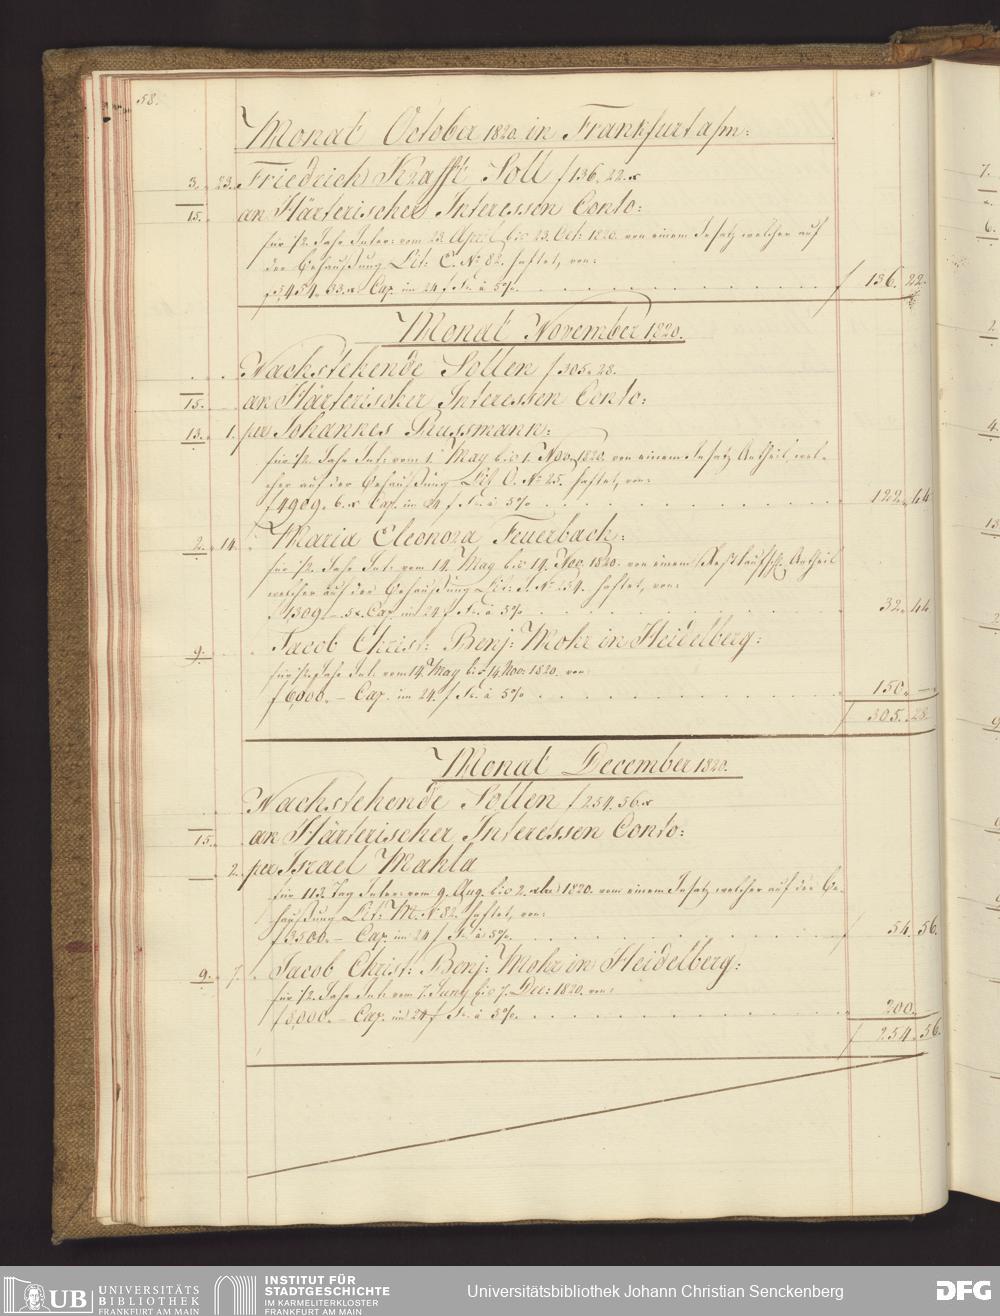 58.
Monat October 1820. in Frankfurt a/m:
3. 23. Friedrich Krafft Soll f 136. 22. x
15. an Härterischer Interessen Conto:
für 1/2 Jahr Inter: vom 23. April bis 23. Oct: 1820. von einem Insatz welcher auf
der Behaußung Lit: C. No 82. haftet, von:
f 5454. 33. x Cap. im 24 f Fs. à 5% f 136. 22.
Monat November 1820.
Nachstehende Sollen f 305. 28.
15. an Härterischer Interessen Conto:
13. 1. per Johannes Russmann:
für 1/2 Jahr Int: vom 1. May bis 1. Nov. 1820. von einem Insatz Antheil, wel-
cher auf der Behaußung Lit O. No 25. haftet, von:
f 4909. 6. x Cap. im 24 f Fs. à 5% 122. 44
2. 14. Maria Eleonora Feuerbach:
für 1/2 Jahr Int: vom 14. May bis 14. Nov. 1820. von einem Antheil
welcher auf der Behaußung Lit: No 254. haftet, von:
f 1309 – 5 x. Cap. im 24 f Fs. à 5% 32. 44
9. Jacob Christ: Benj: Mohr in Heidelberg:
für 1/2 Jahr Int: vom 14. May bis 14 Nov: 1820. von
f 6,000. – Cap. im 24. f Fs. à 5% 150. –
f 305. 28
Monat December 1820.
Nachstehende Sollen f 254. 56. x
15. an Härterischer Interessen Conto:
2. per Israel Mahla
für 113 Tag Inter: vom 9. Aug. bis 2. xbr 1820. vom einem Insatz welcher auf der Be-
haußung Lit: M. No 82. haftet, von:
f 3500. – Cap. im 24 f Fs. à 5% f 54. 56.
9. 7. Jacob Christ: Benj: Mohr in Heidelberg:
für 1/2 Jahr Int: vom 7. Juny bis 7. Dec: 1820. von:
f 8,000. – Cap. im 24 f Fs. à 5% 200.
f 254. 56.
UB UNIVERSITÄTS
BIBLIOTHEK
FRANKFURT AM MAIN
INSTITUT FÜR
STADTGESCHICHTE
IM KARMELITERKLOSTER
FRANKFURT AM MAIN
Universitätsbibliothek Johann Christian Senckenberg
DFG